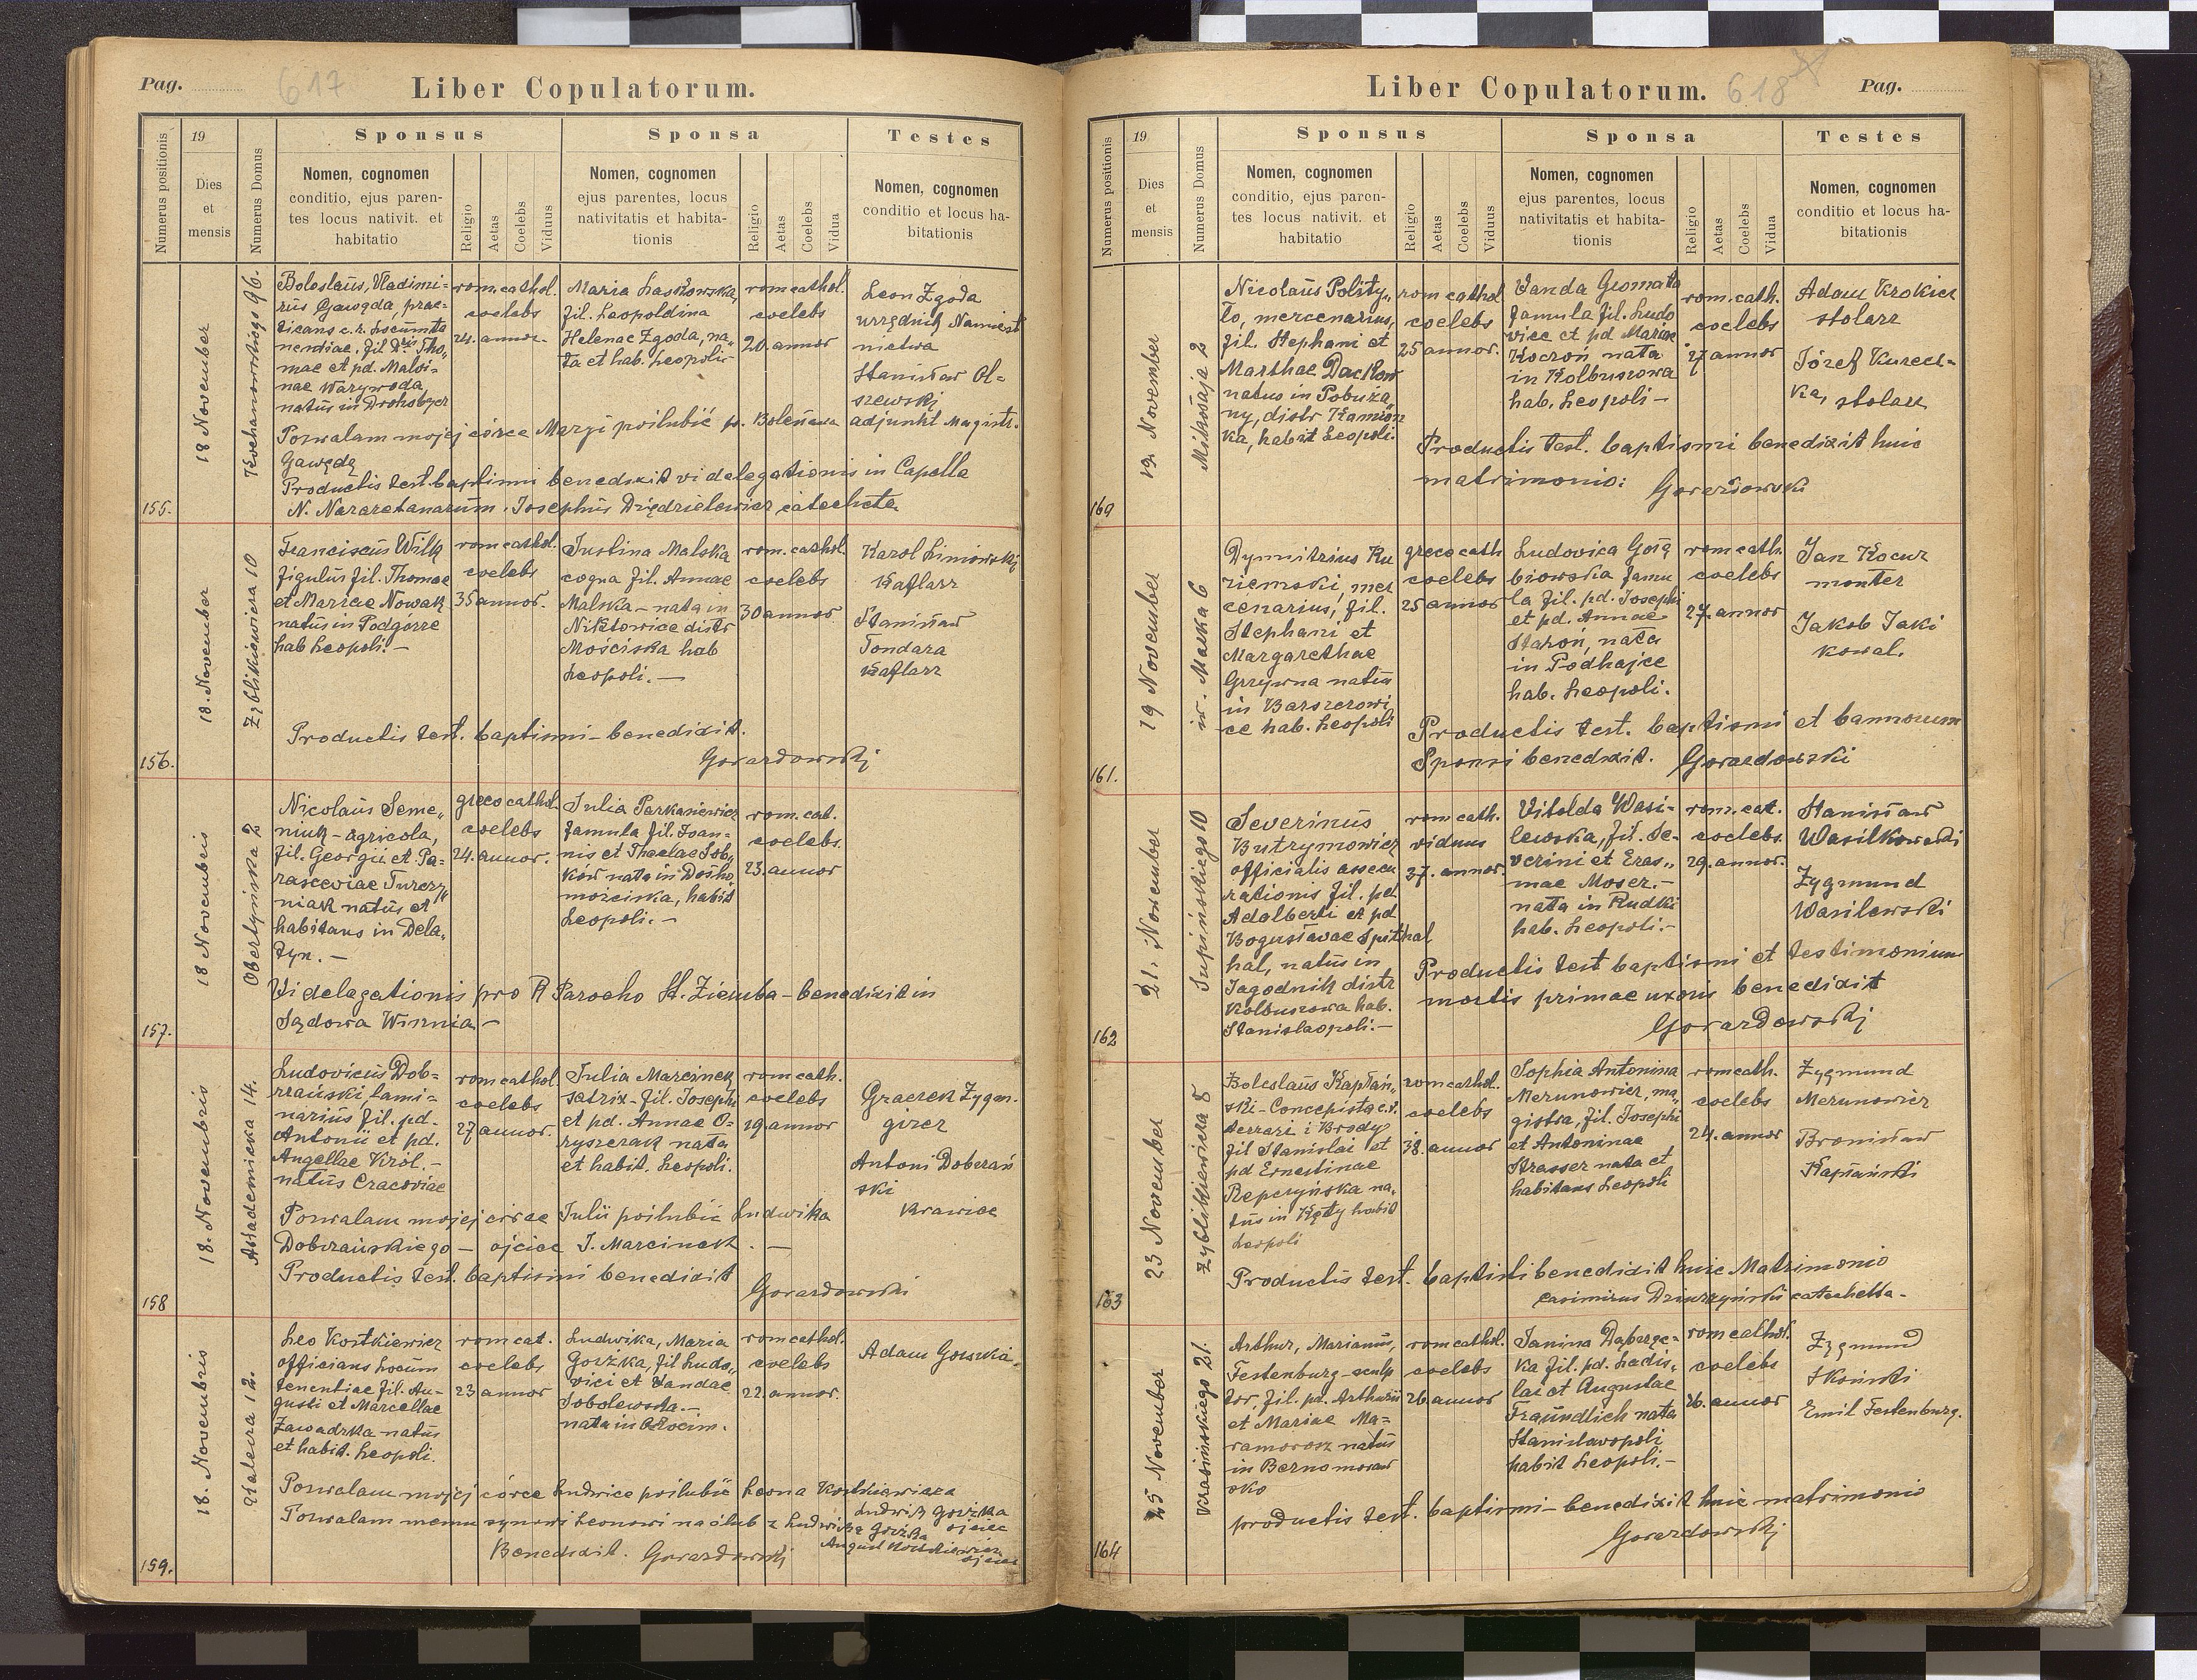 Pag. 617
Liber Copulatorum.
Numerus positionis
19
Dies
et
mensis
Numerus Domus
Sponsus
Nomen, cognomen
conditio, ejus paren-
tes locus nativit. et
habitatio
Religio
Aetas
Coelebs
Viduus
Sponsa
Nomen, cognomen
ejus parentes, locus
nativitatis et habita-
tionis
Religio
Aetas
Coelebs
Vidua
Testes
Nomen, cognomen
conditio et locus ha-
bitationis
155.
18 November
Kochanowskiego 96.
Boleslaus, Vladimi-
rus Gawęda, prac-
ticans c.r.
nendiae, fil. Tho-
mae et pd. Malvi-
nae Warywoda,
natus in Drohobycz
rom cathol.
coelebs
24. annor.
Maria Laskowska,
fil. Leopoldina
Helenae Zgoda, na-
ta et hab. Leopoli-
rom cathol.
coelebs
20. annor
Leon Zgoda
urzędnik Namiest
nictwa
Stanisław Ol=
szewski
adjunkt Magistr.
Pozwalam mojej córce Maryi poślubić p. Bolesława
Gawędę
Productis test. baptismi benedixit vi delegationis in Capella
N. Nazaretanarum. Josephus Dziędzielewicz catecheta
156.
18. November
Zyblikiewicza 10
Franciscus Wilk
figulus fil. Thomae
et Mariae Nowak
natus in Podgórze
hab Leopoli.-
rom cathol.
coelebs
35 annor.
Justina Malska
cogna fil. Annae
Malska - nata in
Niklowice distr
Mościska hab
Leopoli. -
rom. cathol.
coelebs
30 annor
Karol Limowski
kaflarz
Stanisław
Tondara
kaflarz
Productis test. baptismi - benedixit.
Gorazdowski
157.
18 Novembris
Obertyńska 2
Nicolaus Seme„
niuk - agricola,
fil. Georgii et Pa-
rasceviae Turczy„
niak natus et
habitans in Dela„
tyn. -
greco cathol.
coelebs
24. annor.
Julia Parkasiewicz
famula fil. Joan-
nis et Theclae Sob„
ków nata in
mościska, habit
Leopoli. -
rom. cat.
coelebs.
23. annor
Vi delegationis pro R Parocho St. Ziemba - benedixit in
Sądowa Wisznia -
158
18. Novembris
Akademicka 14.
Ludovicus Dob-
rzański, lami-
narius fil. pd.
Antonii et pd.
Angellae Król. -
natus Cracoviae
rom cathol.
coelebs
27 annor.
Julia Marcinek
satrix - fil. Josephi
et pd. Annae O-
ryszczak nata
et habit. Leopoli.
rom cath.
coelebs
19. annor
Graczek Zygm.
girer
Antoni Dobrzań
ski
krawiec
Pozwalam mojej córce Julii poślubić Ludwika
Dobrzańskiego - ojciec J. Marcinek. -
Productis test. baptismi benedixit
Gorazdowski
159.
18. Novembris
Chaleira 12.
Leo Kostkiewicz
officians Locum
tenentiae fil. Au-
gusti et Marcellae
Zawadzka natus
et habit. Leopoli.
rom cat.
coelebs
23 annor
Ludwika, Maria
Gorżka, fil Ludo„
vici et Vandae
Sobolewska. -
nata in Oświęcim.
rom cathol.
coelebs
22. annor.
Adam Gorska.
Pozwalam mojej córce Ludwice poślubić Leona Kostkiewicza
Ludwik Gorżka
ojciec
Pozwalam memu synowi Leonowi na ślub z Ludwiką Gorżka
August Kostkiewicz
ojciec
Benedixit. Gorazdowski
Liber Copulatorum. 618
Pag.
Numerus positionis
19
Dies
et
mensis
Numerus Domus
Sponsus
Nomen, cognomen
conditio, ejus paren-
tes locus nativit. et
habitatio
Religio
Aetas
Coelebs
Viduus
Sponsa
Nomen, cognomen
ejus parentes, locus
nativitatis et habita-
tionis
Religio
Aetas
Coelebs
Vidua
Testes
Nomen, cognomen
conditio et locus ha-
bitationis
160
19. November
Mikołaja 2
Nicolaus Polity„
ło, mercenarius,
fil. Stephani et
Marthae Dackow
natus in Pobuża„
ny, distr Kamion
ka, habit Leopoli.
rom cathol
coelebs
25 annor.
Vanda Gromata
famula fil. Ludo
vice et pd Mariae
Kocroń nata
in Kolbuszowa
hab. Leopoli -
rom. cath.
coelebs
27 annor
Adam Krokier
stolarz
Józef Kurecz-
ka, stolarz
Productis test. baptismi benedixit huic
matrimonio: Gorazdowski
161.
19 November
św. Marka 6
Dymitrius Ku
ziemski, mer
cenarius, fil.
Stephani et
Margarethae
Grzywna natus
in Barszczowi
ce hab. Leopoli
greco cath
coelebs
25 annor
Ludovica Gołę
biowska famu
la fil. pd. Josephi
et pd. Annae
Staroń, nata
in Podhajce
hab. Leopoli.
rom cath.
coelebs
27. annor
Jan Kocur
monter
Jakob Jaki
kowal.
Productis test. baptismi et bannorum
Sponsi benedixit. Gorazdowski
162
21. November
Supińskiego 10
Severinus
Butrymowicz
officialis assecu
rationis fil. pd
Adalberti et pd
Bogusławae Spithal
hal, natus in
Jagodnik distr
Kolbuszowa hab.
Stanislaopoli. -
rom cath.
viduus
37. annor.
Vitolda Wasi-
lewska, fil. Se-
verini et Eras„
mae Moser. -
nata in Rudki
hab. Leopoli. -
rom. cat.
coelebs
29. annor.
Stanisław
Wasilkowski
Zygmund
Wasilewski
Productis test baptismi et testimonium
mortis primae uxoris benedixit
Gorazdowski
163
23 November
Zyblikiewicza 8
Boleslaus Kapłań„
ski - Concepista c.r.
terrazi i Brody
fil Stanislai et
pd Ernestinae
Repczyńska na„
tus in Kęty habit
Leopoli
rom cathol.
coelebs
38. annor
Sophia Antonina
Merunowicz, ma„
gistra, fil. Josephi
et Antoninae
Strasser nata et
habitans Leopoli
rom cath.
coelebs
24. annor
Zygmund
Merunowicz
Bronisław
Kapłański
Productis test. baptisti benedixit huic Matrimonio
Casimirus Dziurzyński catechetta.
164
25 November
Krasińskiego 21.
Arthur, Marianus,
Festenburg - sculp
tor, fil. pd. Arthurii
et Mariae Ma-
ramorosz natus
in Berno moraw
sko
rom cathol.
coelebs
26. annor
Janina Dąbrzec-
ka fil. pd. Ladis„
lai et Augustae
Fraundlich nata
Stanislavopoli
habit Leopoli. -
rom cathol.
coelebs
26. annor
Zygmund
Skoinski
Emil Festenburg.
productis test. baptismi - benedixit huic matrimonio
Gorazdowski